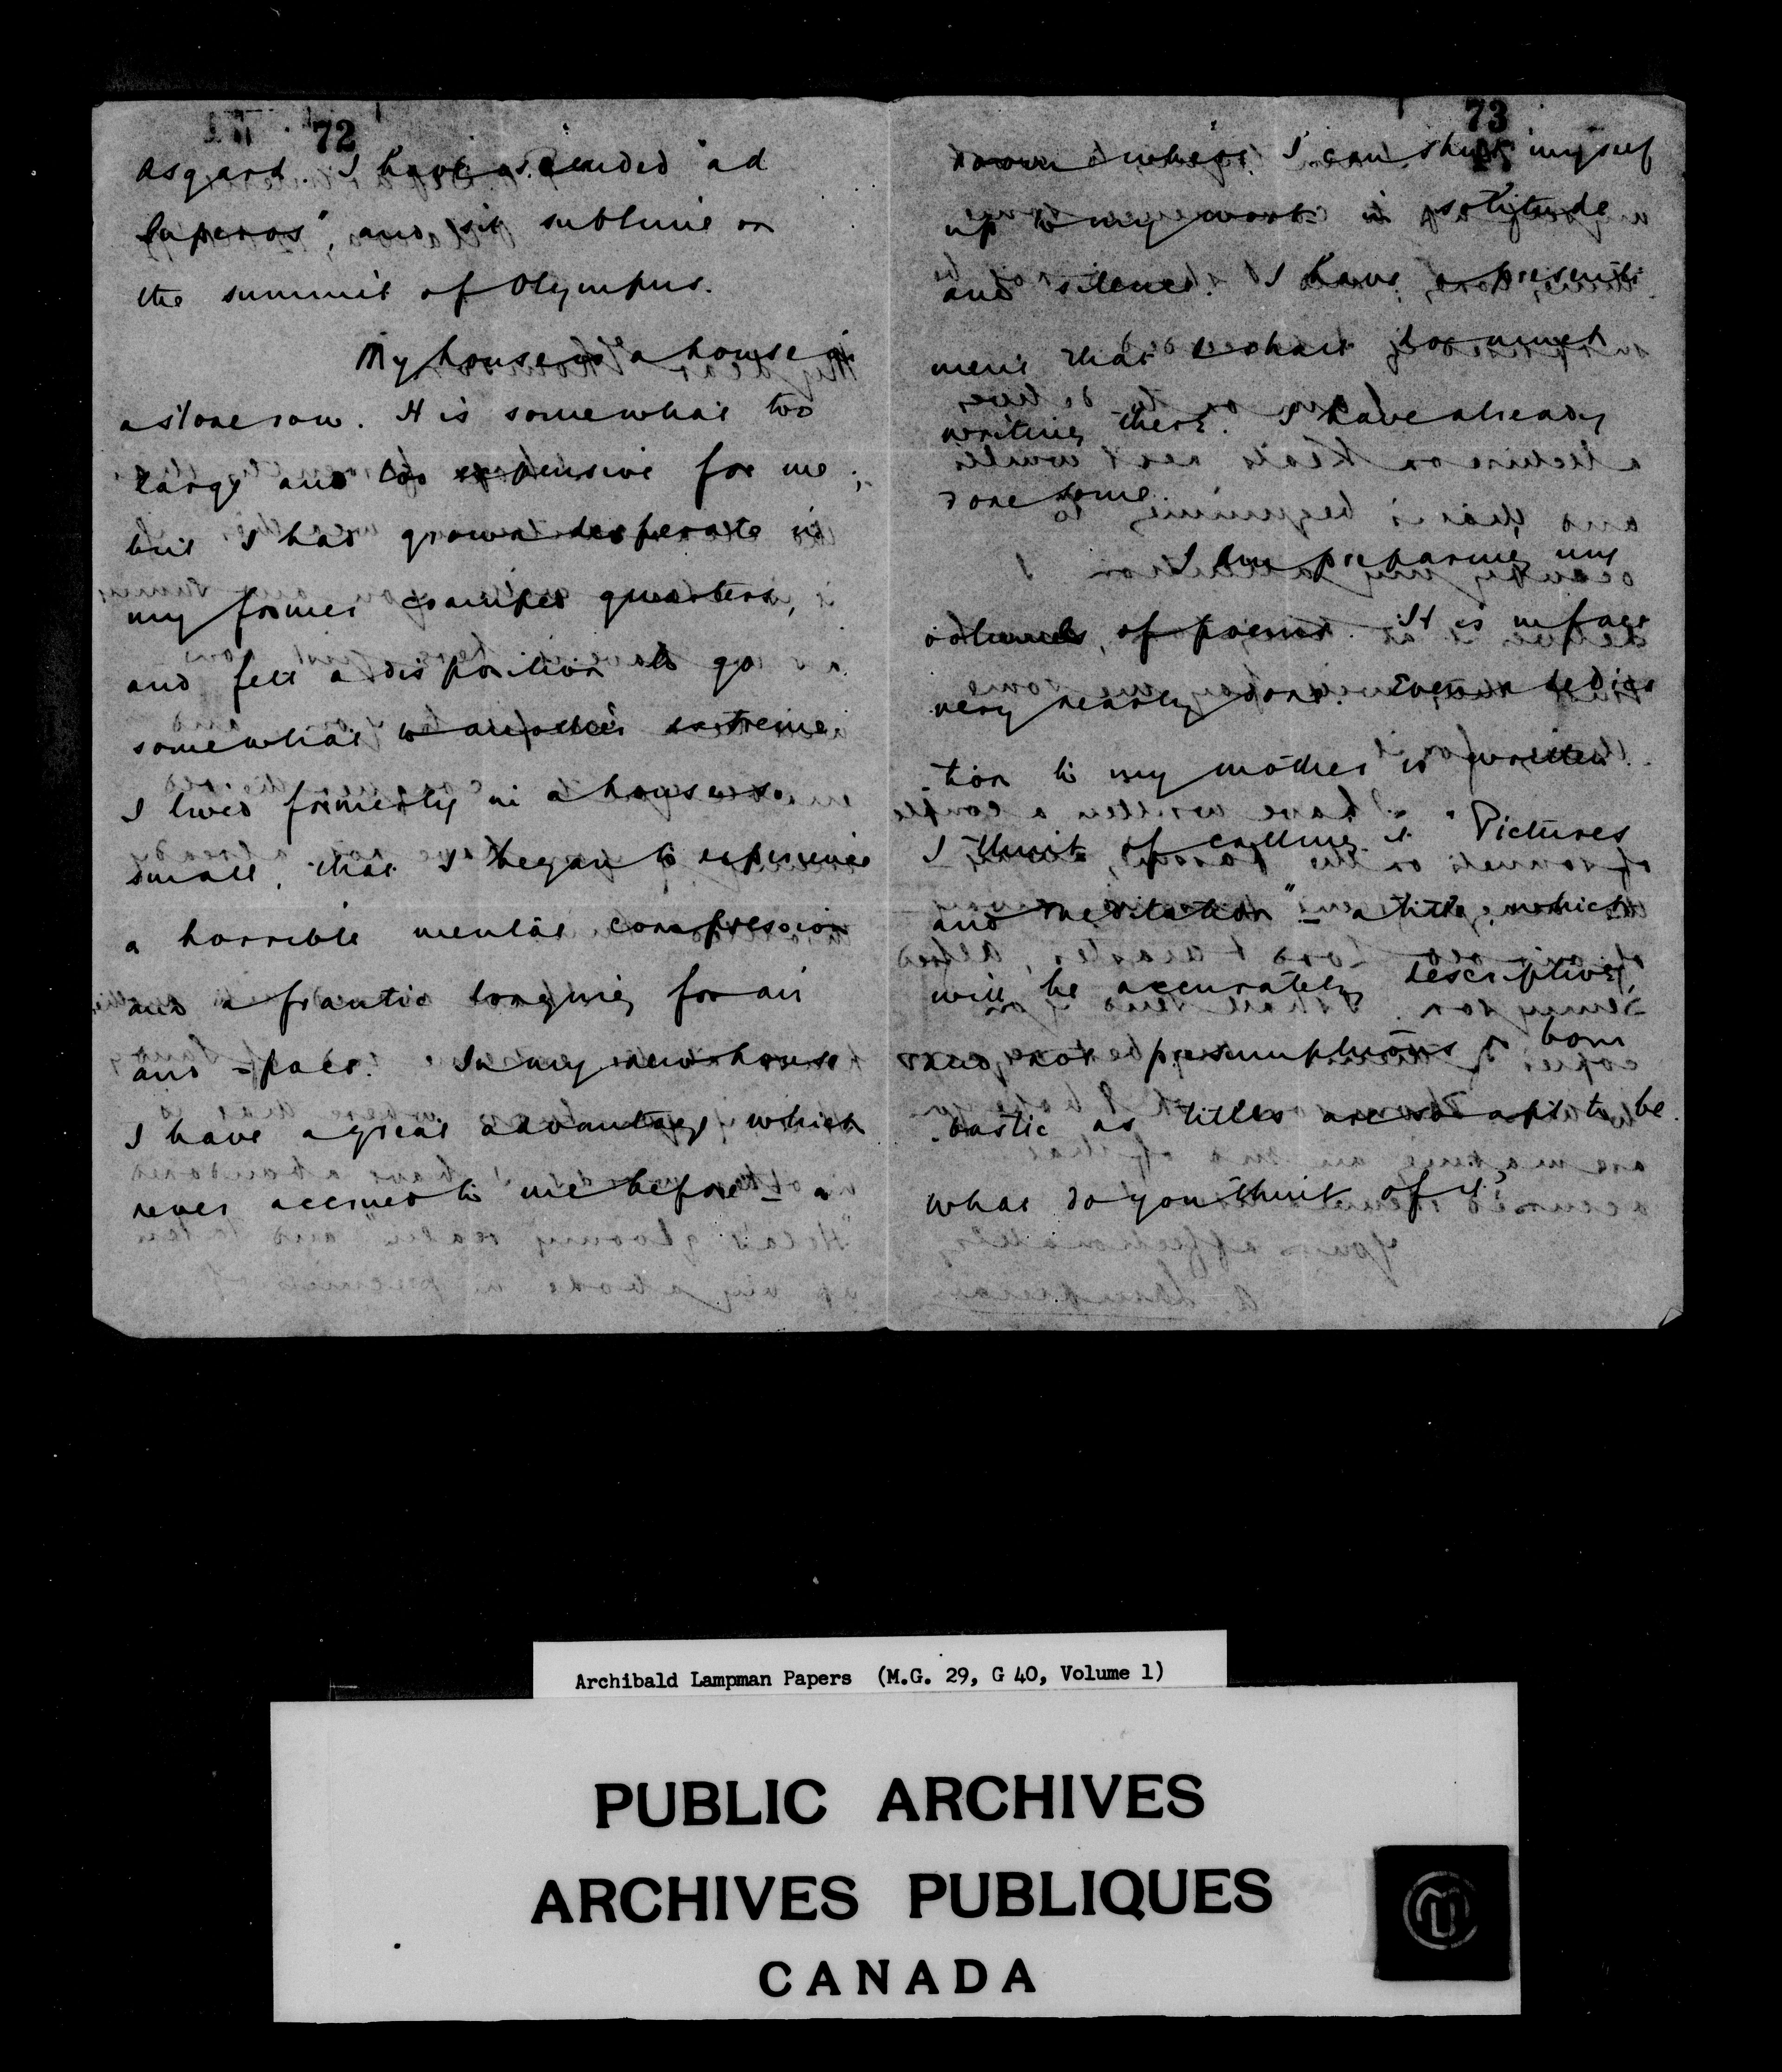 72
Asgard. I have ascended "ad
Superos", and sit sublime on
the summit of Olympus.
My house is a house in
a stone row. It is somewhat too
large and too expensive for me;
but I had grown desperate in
my former cramped quarters,
and felt a disposition to go
somewhat to another extreme.
I lived formerly in a house so
small, that I began to experience
a horrible mental compression
and a frantic longing for air
and space. In my new house
I have a great advantage which
never accrued to me before – a
73
room where I can shut myself
up to my work in solitude
and silence. I have a presenti-
ment that I shall do much
writing there. I have already
done some.
I am preparing my
volume of poems. It is in fact
very nearly done. Even a dedica
-tion to my mother is written.
I think of calling it "Pictures
and Meditation" – a title, which
will be accurately descriptive,
and not presumptuous or bom
-bastic as titles are so apt to be.
What do you think of it?
Archibald Lampman Papers (M.G. 29, G 40, Volume 1)
PUBLIC ARCHIVES
ARCHIVES PUBLIQUES
CANADA